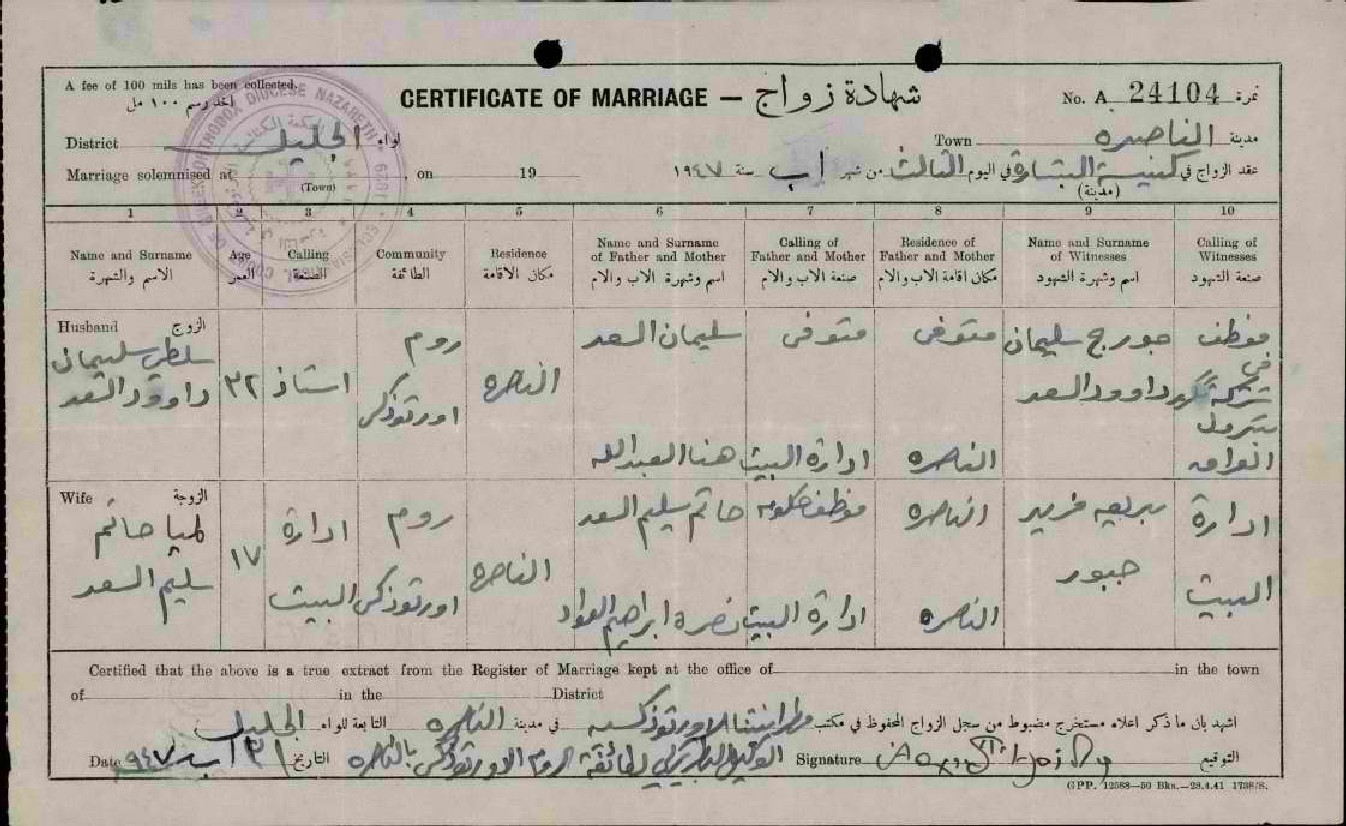 A fee of 100 mils has been collected.
أخذ رسم ١٠٠ مل
CERTIFICATE OF MARRIAGE — شهادة زواج
No. A 24104 نمرة
District الجليل لواء
Town الناصره مدينة
Marriage solemnised at (Town), on 19
عقد الزواج في كنيسة البشارة (مدينة) في اليوم الثالث من شهر اب سنة ١٩٤٧
GREEK ORTHODOX DIOCESE NAZARETH
1 2 3 4 5 6 7 8 9 10
Name and Surname
الاسم والشهرة
Age
العمر
Calling
الصنعة
Community
الطائفة
Residence
مكان الاقامة
Name and Surname
of Father and Mother
اسم وشهرة الاب والام
Calling of
Father and Mother
صنعة الاب والام
Residence of
Father and Mother
مكان اقامة الاب والام
Name and Surname
of Witnesses
اسم وشهرة الشهود
Calling of
Witnesses
صنعة الشهود
Husband الزوج
سلطي سليمان
داوود السعد
٣٢
استاذ
روم
اورتوذكس
الناصره
سليمان السعد
هنا العبدالله
متوفى
ادارة البيت
متوفى
الناصره
جورج سليمان
داوود السعد
موظف
في
شركة
بترول
العراق
Wife الزوجة
لميا حاتم
سليم السعد
١٧
ادارة
البيت
روم
اورتوذكس
الناصره
حاتم سليم السعد
نصره ابراهيم العواد
موظف حكومه
ادارة البيت
الناصره
الناصره
بديعه فريد
جبور
ادارة
البيت
Certified that the above is a true extract from the Register of Marriage kept at the office of in the town
of in the District
اشهد بان ما ذكر اعلاه مستخرج مضبوط من سجل الزواج المحفوظ في مكتب مطرانيتنا الاورتوذكسيه في مدينة الناصره التابعة للواء الجليل
Date ٣ اب ٩٤٧ التاريخ
الوكيل البطريركي لطائفة الروم الاورتوذكس بالناصره
Signature التوقيع
GPP. 12588—50 Bks.—28.4.41 1738/S.